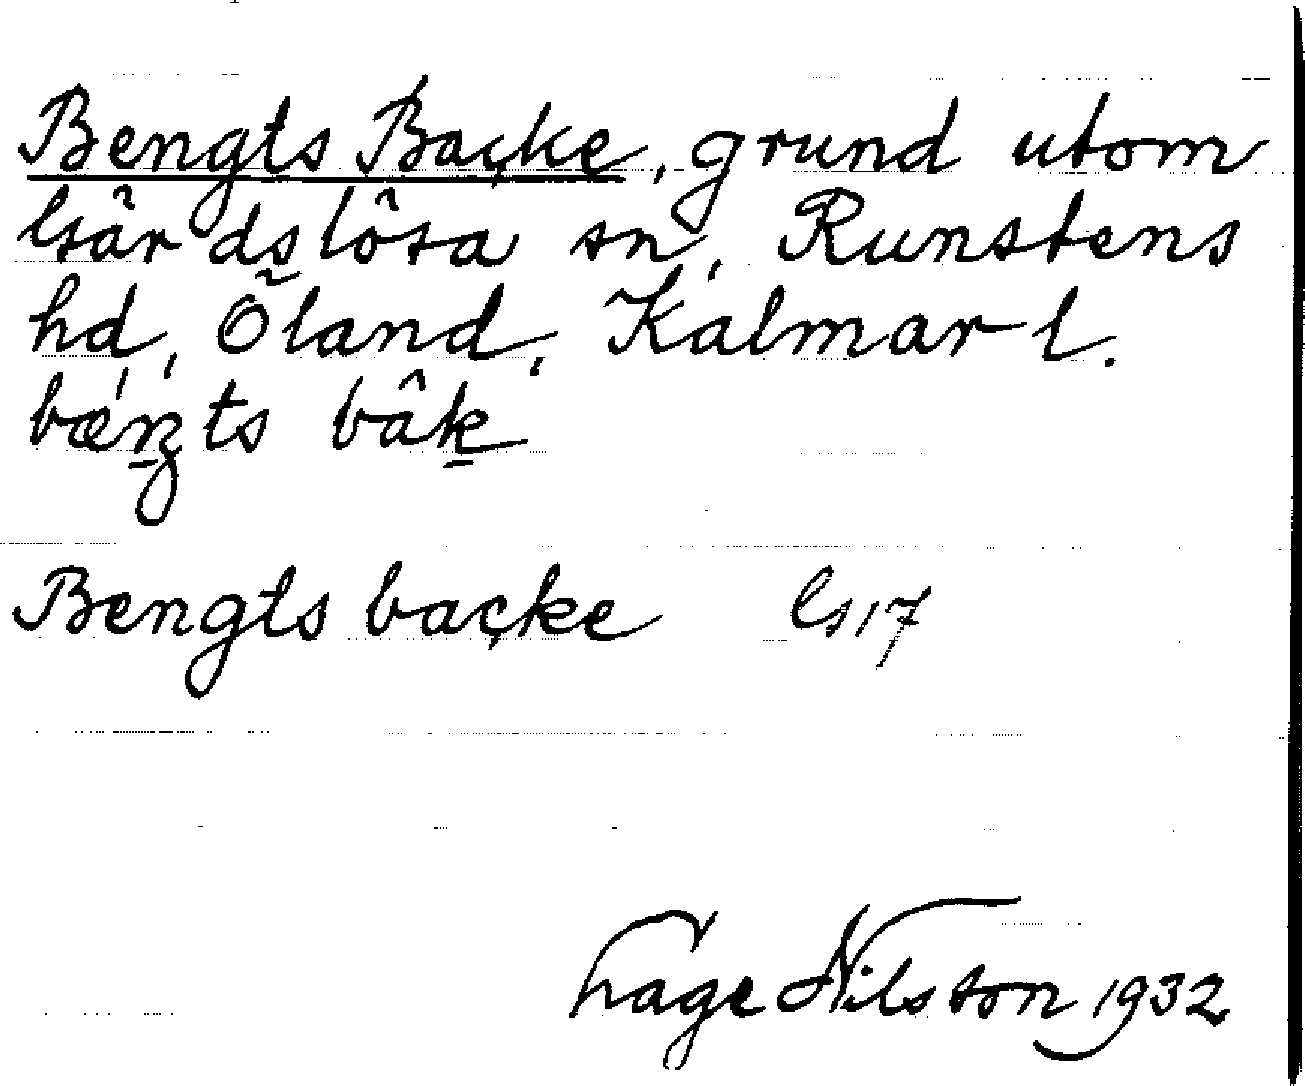 Bengts Backe, grund utom
Gärdslösa sn, Runstens
hd, Öland, Kalmar l.
bæ̀ŋ́ts bâk̲
Bengts backe Gs 17
Hage Nilsson 1932